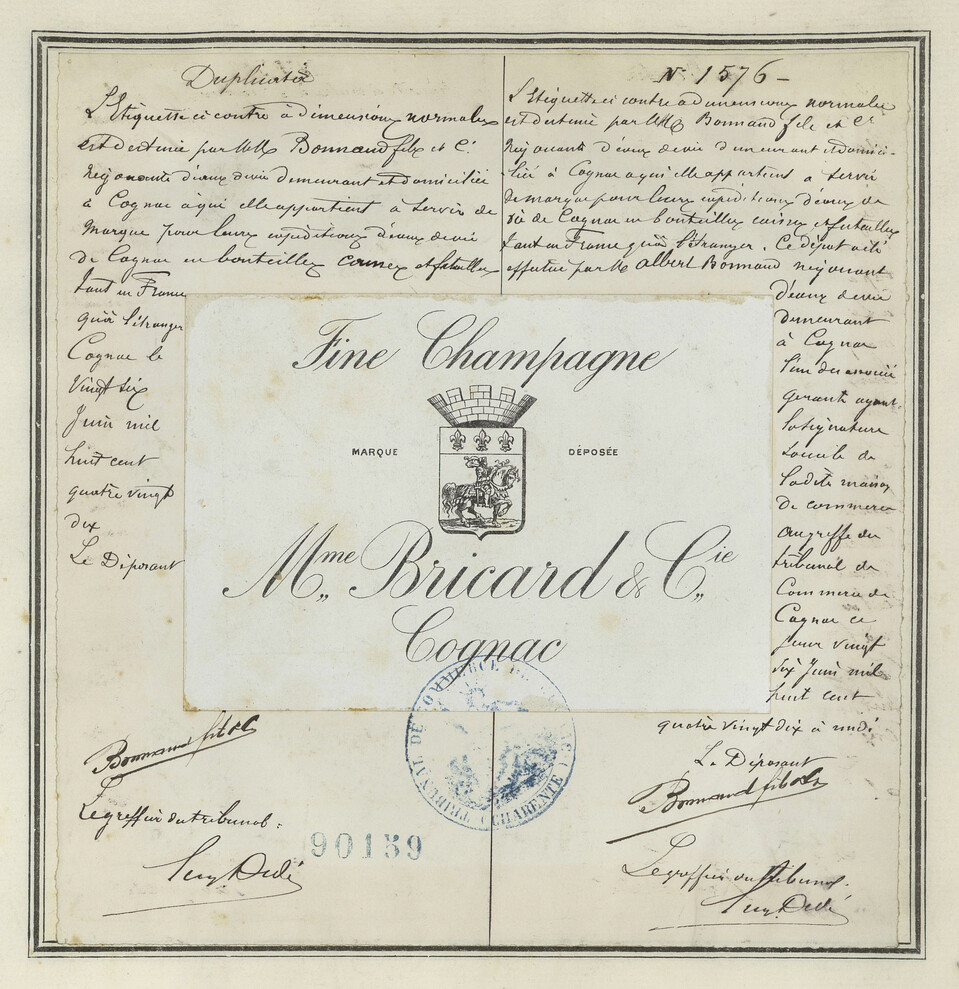 Duplicata
L'Etiquette ci contre à dimensions normales
est destinée par MM Bonnand fils et Cie
négociants d'eaux de vie demeurant et domiciliés
à Cognac à qui elle appartient à servir de
marque pour leurs expéditions d'eaux de vie
de Cognac en bouteilles caisses et futailles
tant en France
qu'à l'étranger
Cognac le
Vingt six
Juin mil
huit cent
quatre vingt
dix
Le Déposant
Bonnand fils & Cie
Le greffier du tribunal :
90159
N° 1576 -
L'Etiquette ci contre à dimensions normales
est destinée par MM Bonnand fils et Cie
négociants d'eaux de vie demeurant et domici-
liés à Cognac à qui elle appartient à servir
de marque pour leurs expéditions d'eaux de
vie de Cognac en bouteilles caisses et futailles
tant en France qu'à l'étranger. Ce dépot a été
effectué par M Albert Bonnand négociant
d'eaux de vie
demeurant
à Cognac
l'un des associés
gerants ayant
la signature
sociale de
la dite maison
de commerce
au greffe du
tribunal de
Commerce de
Cognac ce
jour vingt
six Juin mil
huit cent
quatre vingt dix à midi
Le Déposant
Bonnand fils & Cie
Le greffier du tribunal.
Fine Champagne
MARQUE DÉPOSÉE
Mme Bricard & Cie
Cognac
TRIBUNAL DE COMMERCE DE COGNAC
(CHARENTE)